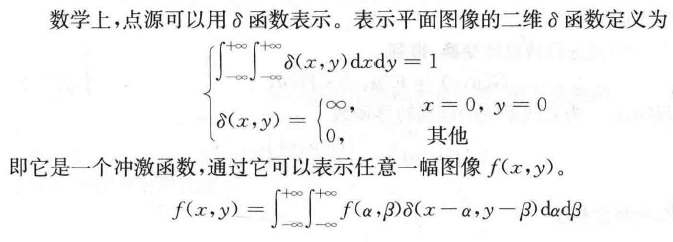 数学上,点源可以用δ函数表示。表示平面图像的二维δ函数定义为
∫_{-∞}^{+∞}∫_{-∞}^{+∞} δ(x,y)dxdy=1
δ(x,y)={∞, x=0, y=0
0, 其他
即它是一个冲激函数,通过它可以表示任意一幅图像 f(x,y)。
f(x,y)=∫_{-∞}^{+∞}∫_{-∞}^{+∞} f(α,β)δ(x-α,y-β)dαdβ